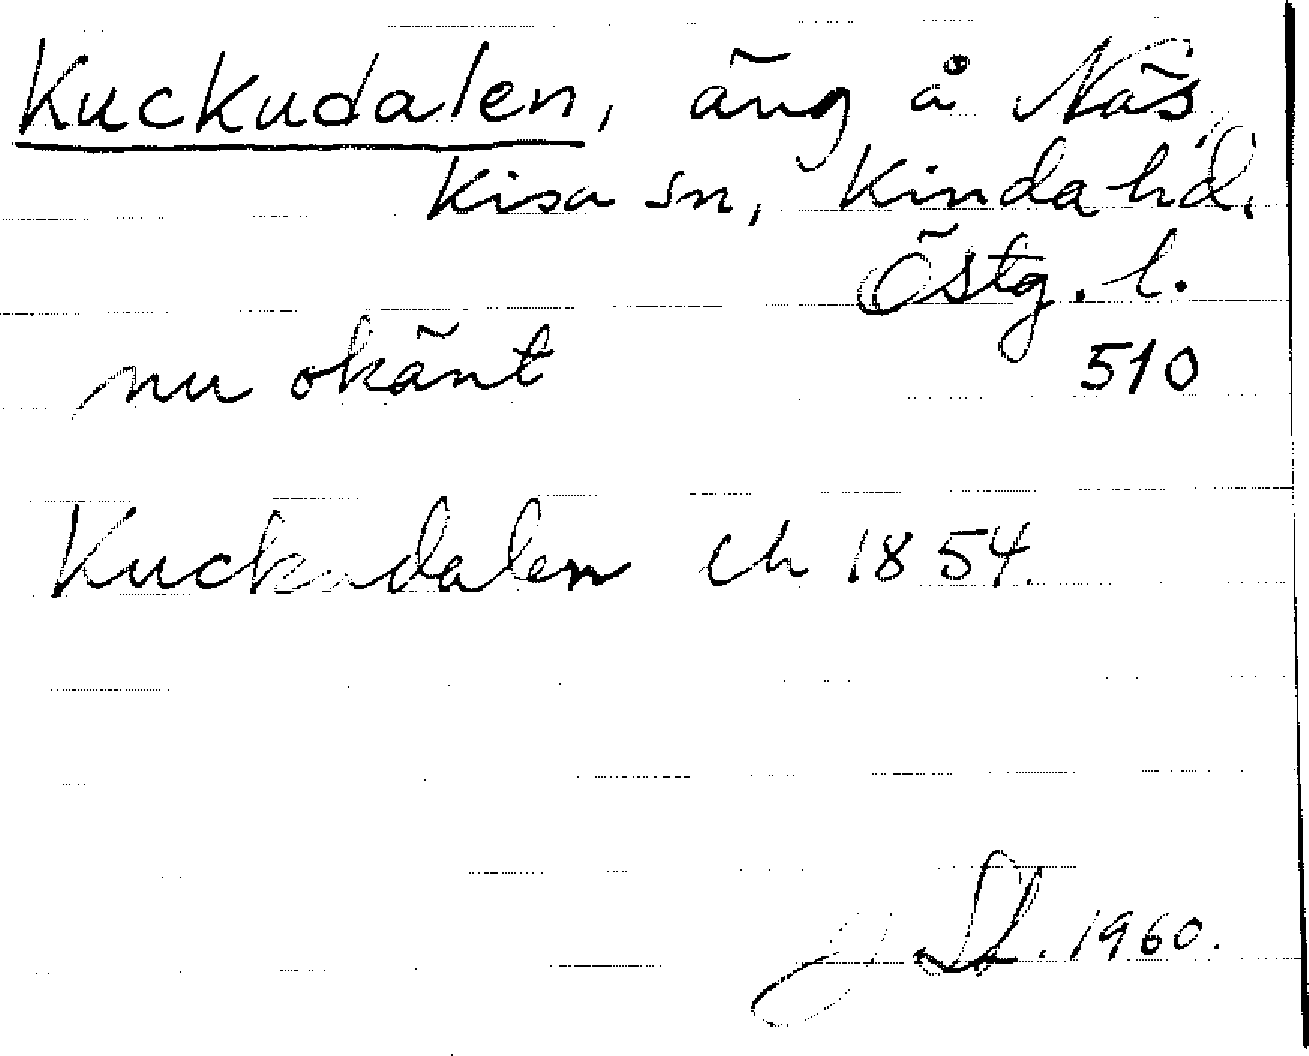 Kuckudalen, äng å Näs,
Kisa sn, Kinda hd.
Östg. l.
nu okänt 510
Kuckudalen ch 1854.
1960.